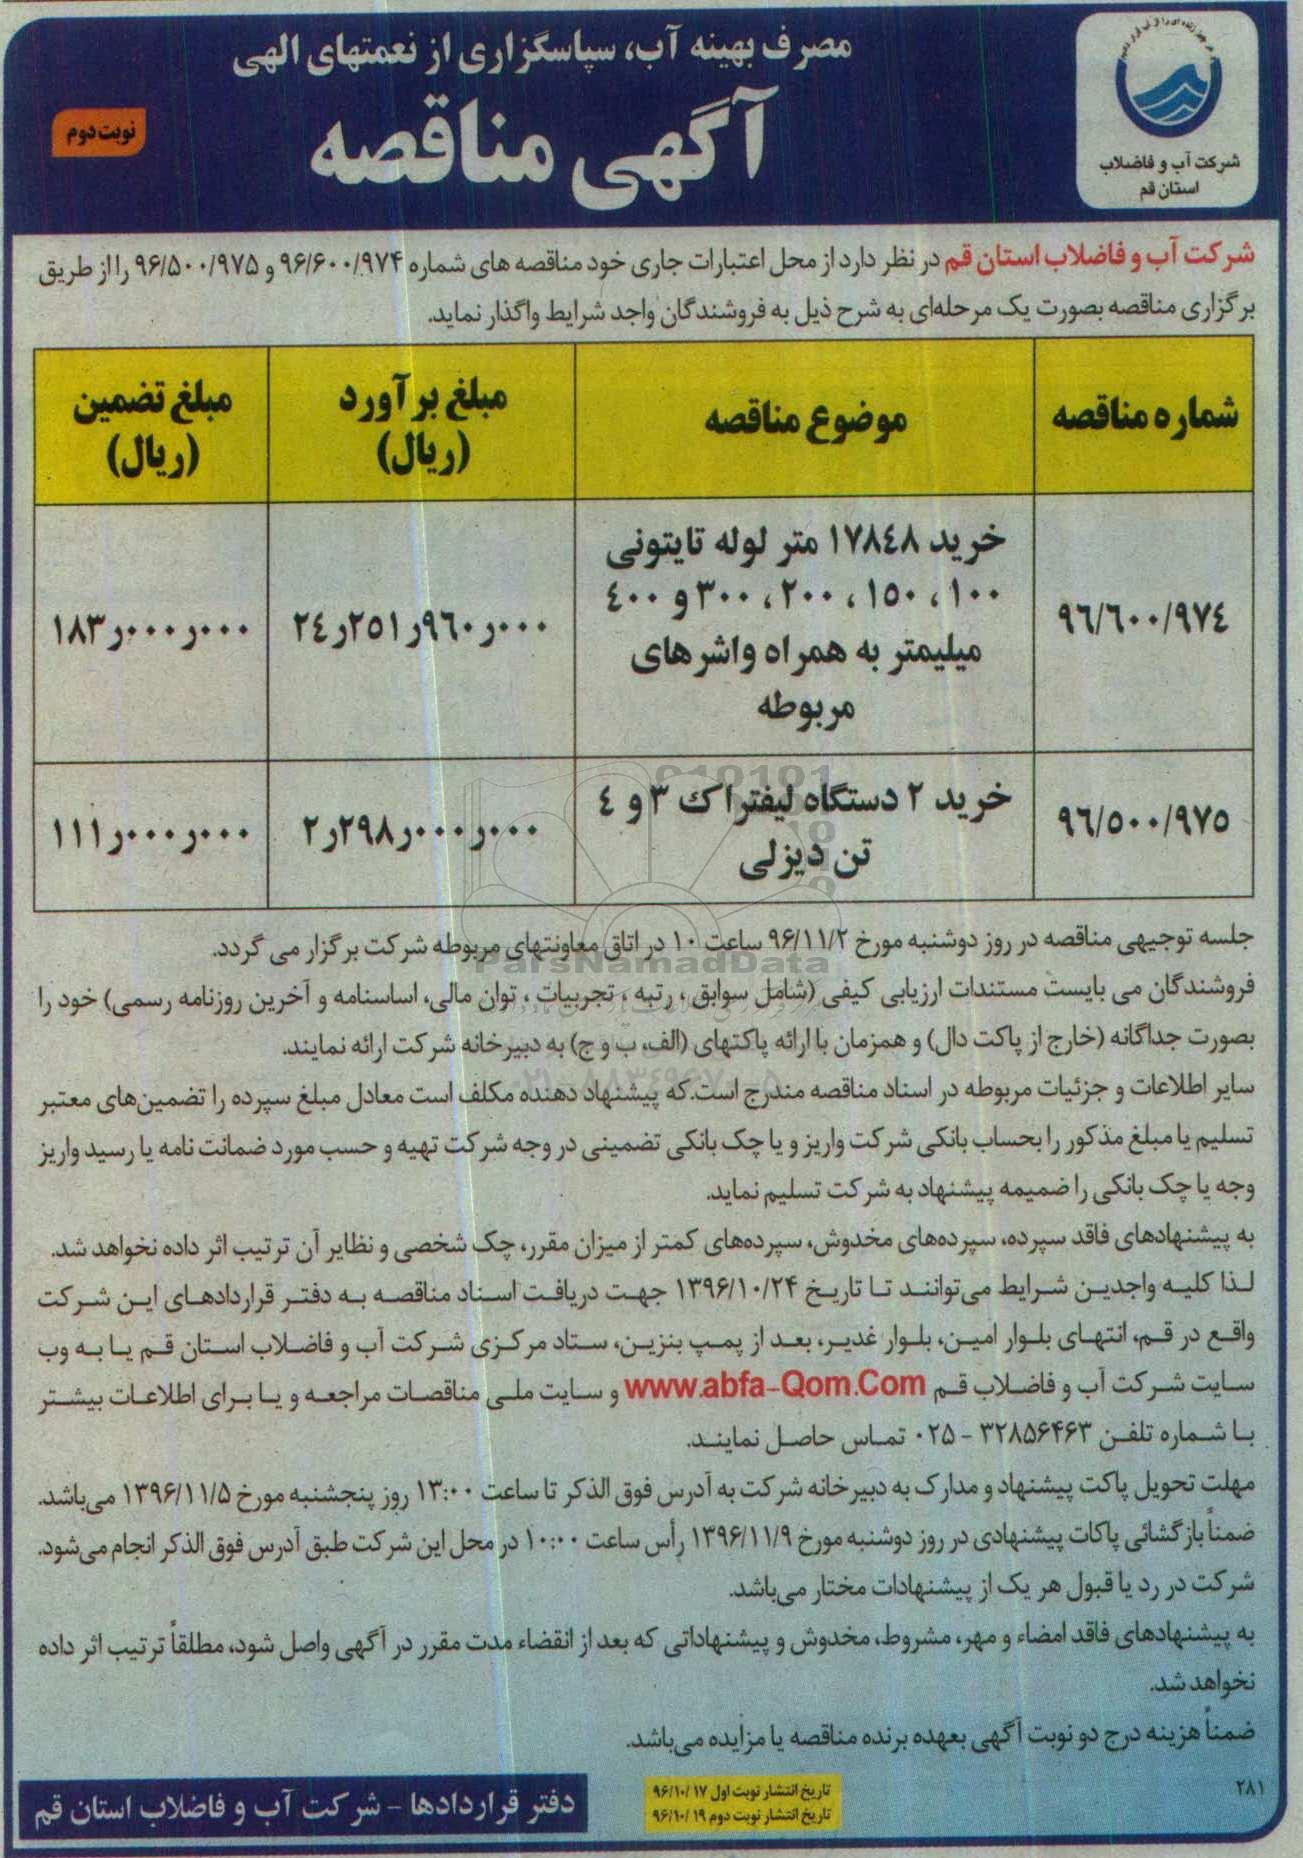 مصرف بهینه آب، سپاسگزاری از نعمتهای الهی
آگهی مناقصه
نوبت دوم
شرکت آب و فاضلاب
استان قم
شرکت آب و فاضلاب استان قم در نظر دارد از محل اعتبارات جاری خود مناقصه های شماره ۹۶/۶۰۰/۹۷۴ و ۹۶/۵۰۰/۹۷۵ را از طریق
برگزاری مناقصه بصورت یک مرحله‌ای به شرح ذیل به فروشندگان واجد شرایط واگذار نماید.
شماره مناقصه
موضوع مناقصه
مبلغ برآورد
(ریال)
مبلغ تضمین
(ریال)
۹۶/۶۰۰/۹۷۴
خرید ۱۷۸۴۸ متر لوله تایتونی
۱۰۰ ، ۱۵۰ ، ۲۰۰ ، ۳۰۰ و ۴۰۰
میلیمتر به همراه واشرهای
مربوطه
۲۴٫۲۵۱٫۹۶۰٫۰۰۰
۱۸۳٫۰۰۰٫۰۰۰
۹۶/۵۰۰/۹۷۵
خرید ۲ دستگاه لیفتراک ۳ و ۴
تن دیزلی
۲٫۲۹۸٫۰۰۰٫۰۰۰
۱۱۱٫۰۰۰٫۰۰۰
جلسه توجیهی مناقصه در روز دوشنبه مورخ ۹۶/۱۱/۲ ساعت ۱۰ در اتاق معاونتهای مربوطه شرکت برگزار می گردد.
ParsNamadData
فروشندگان می بایست مستندات ارزیابی کیفی (شامل سوابق ، رتبه ، تجربیات ، توان مالی، اساسنامه و آخرین روزنامه رسمی) خود را
بصورت جداگانه (خارج از پاکت دال) و همزمان با ارائه پاکتهای (الف، ب و ج) به دبیرخانه شرکت ارائه نمایند.
سایر اطلاعات و جزئیات مربوطه در اسناد مناقصه مندرج است.که پیشنهاد دهنده مکلف است معادل مبلغ سپرده را تضمین‌های معتبر
تسلیم یا مبلغ مذکور را بحساب بانکی شرکت واریز و یا چک بانکی تضمینی در وجه شرکت تهیه و حسب مورد ضمانت نامه یا رسید واریز
وجه یا چک بانکی را ضمیمه پیشنهاد به شرکت تسلیم نماید.
به پیشنهادهای فاقد سپرده، سپرده‌های مخدوش، سپرده‌های کمتر از میزان مقرر، چک شخصی و نظایر آن ترتیب اثر داده نخواهد شد.
لذا کلیه واجدین شرایط می‌توانند تا تاریخ ۱۳۹۶/۱۰/۲۴ جهت دریافت اسناد مناقصه به دفتر قراردادهای این شرکت
واقع در قم، انتهای بلوار امین، بلوار غدیر، بعد از پمپ بنزین، ستاد مرکزی شرکت آب و فاضلاب استان قم یا به وب
سایت شرکت آب و فاضلاب قم www.abfa-Qom.Com و سایت ملی مناقصات مراجعه و یا برای اطلاعات بیشتر
با شماره تلفن ۳۲۸۵۶۴۶۳ - ۰۲۵ تماس حاصل نمایند.
مهلت تحویل پاکت پیشنهاد و مدارک به دبیرخانه شرکت به آدرس فوق الذکر تا ساعت ۱۳:۰۰ روز پنجشنبه مورخ ۱۳۹۶/۱۱/۵ می‌باشد.
ضمناً بازگشائی پاکات پیشنهادی در روز دوشنبه مورخ ۱۳۹۶/۱۱/۹ رأس ساعت ۱۰:۰۰ در محل این شرکت طبق آدرس فوق الذکر انجام می‌شود.
شرکت در رد یا قبول هر یک از پیشنهادات مختار می‌باشد.
به پیشنهادهای فاقد امضاء و مهر، مشروط، مخدوش و پیشنهاداتی که بعد از انقضاء مدت مقرر در آگهی واصل شود، مطلقاً ترتیب اثر داده
نخواهد شد.
ضمناً هزینه درج دو نوبت آگهی بعهده برنده مناقصه یا مزایده می‌باشد.
۲۸۱
تاریخ انتشار نوبت اول ۹۶/۱۰/۱۷
تاریخ انتشار نوبت دوم ۹۶/۱۰/۱۹
دفتر قراردادها - شرکت آب و فاضلاب استان قم